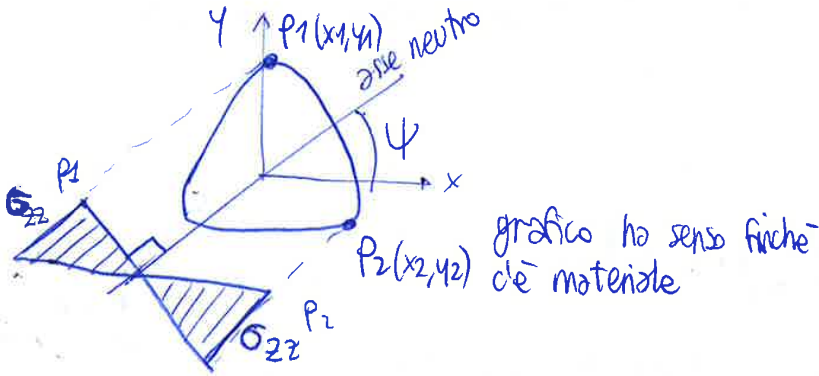 y
P1(x1,y1)
asse neutro
ψ
x
P1
σzz
P2(x2,y2)
grafico ha senso finchè
c'è materiale
P2
σzz